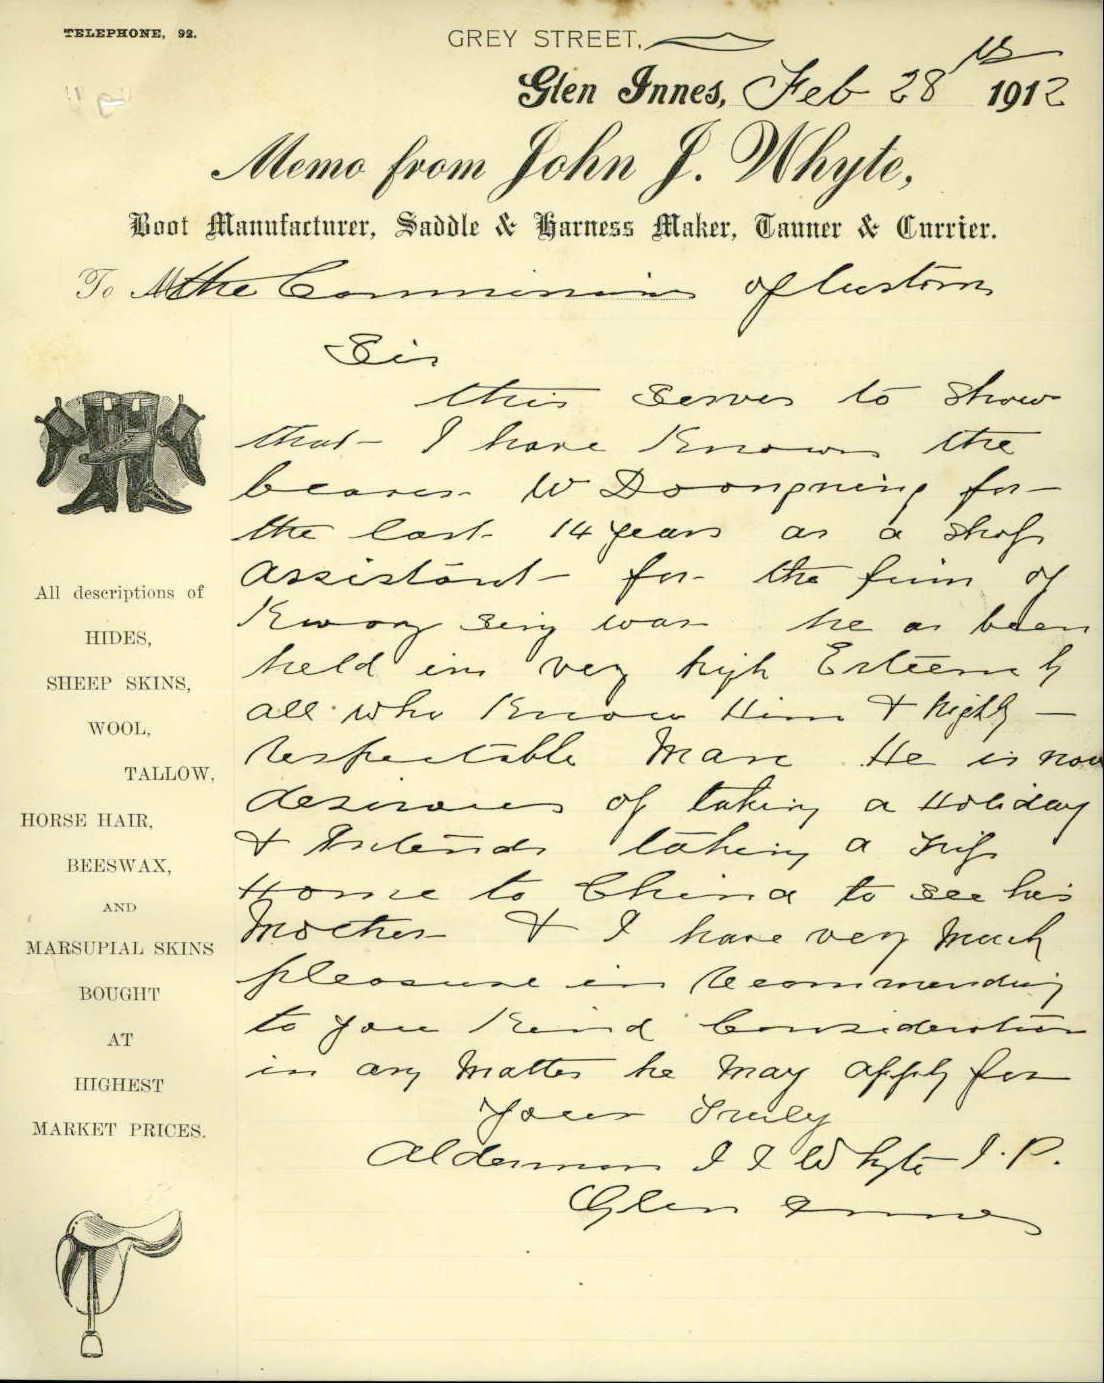 TELEPHONE, 92.
GREY STREET,
Glen Innes, Feb 28th 1912
Memo from John J. Whyte,
Boot Manufacturer, Saddle & Harness Maker, Tanner & Currier.
To M the Commissioner of Customs
Sir
this serves to show
that I have Known the
bearer W Doongning for
the last 14 years as a shop
assistant for the firm of
Kwong Sing War he as been
held in very high Esteem by
all who Know Him & highly
respectable Man He is now
desirous of taking a Holiday
& Intends taking a Trip
Home to China to see his
Mother & I have very Much
pleasure in Recommending
to you Kind Consideration
in any Matter he May apply for
Yours Truly
Alderman J J Whyte J.P.
Glen Innes
All descriptions of
HIDES,
SHEEP SKINS,
WOOL,
TALLOW,
HORSE HAIR,
BEESWAX,
AND
MARSUPIAL SKINS
BOUGHT
AT
HIGHEST
MARKET PRICES.